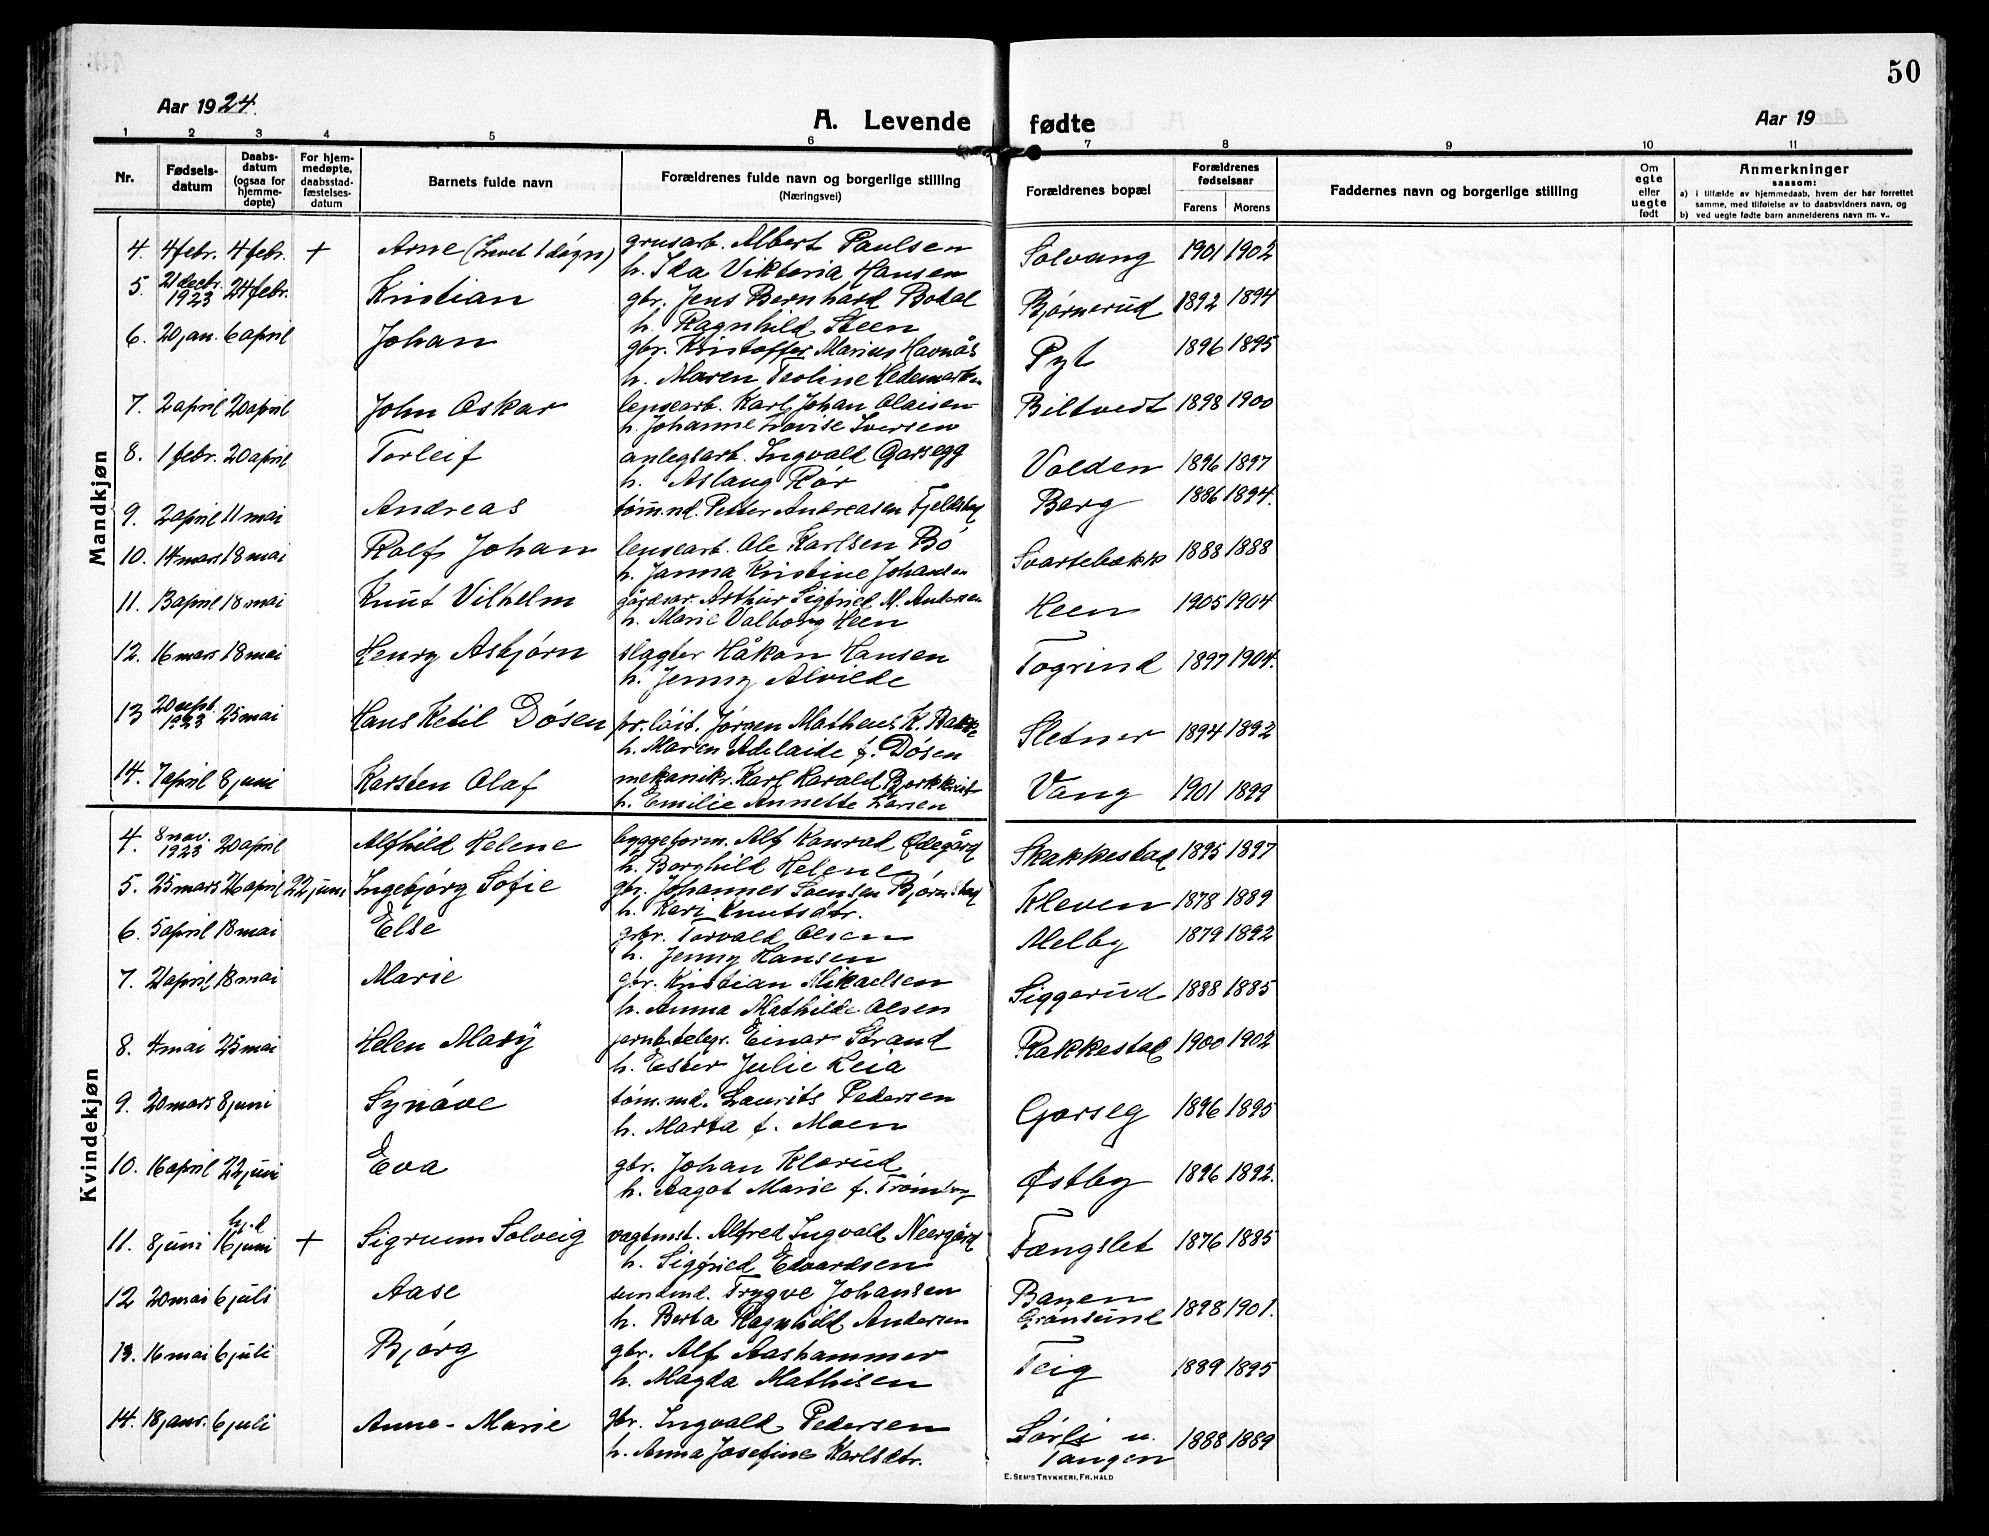 50
Aar 1924.
A. Levende fødte
Aar 19
1 2 3 4 5 6 7 8 9 10 11
Nr.
Fødsels-
datum
Daabs-
datum
(ogsaa for
hjemme-
døpte)
For hjem-
medøpte,
daabsstad-
fæstelses-
datum
Barnets fulde navn
Forældrenes fulde navn og borgerlige stilling
(Næringsvei)
Forældrenes bopæl
Forældrenes
fødselsaar
Farens Morens
Faddernes navn og borgerlige stilling
Om
egte
eller
uegte
født
Anmerkninger
saasom:
a) i tilfælde av hjemmedaab, hvem der har forrettet
samme, med tilføielse av to daabsvidners navn, og
b) ved uegte fødte barn anmelderens navn m. v..
Mandkjøn
4. 4 febr. 4 febr. + Arne (Levet 1 døgn) grusarb. Albert Paulsen Solvang 1901 1902
h. Ida Viktoria Hansen
5. 21 decbr. 1923 24 febr. Kristian gbr. Jens Bernhard Bodal Bjørnerud 1892 1894
h. Ragnhild Steen
6. 20 jan. 6 april Johan gbr. Kristoffer Marius Havnås Pyt 1896 1895
h. Maren Teoline Hedemark
7. 2 april 20 april John Oskar lensearb. Karl Johan Olaisen Biltvedt 1898 1900
h. Johanne Lovise Iversen
8. 1 febr. 20 april Torleif anlegsarb. Ingvald Garsegg Volden 1896 1897
h. Aslaug Rør
9. 2 april 11 mai Andreas tømmd. Petter Andreasen Fjeldstad Berg 1886 1894.
10. 14 mars 18 mai Rolf Johan lensearb. Ole Karlsen Bø Svartebækk 1888 1888
h. Janna Kristine Johansen
11. 13 april 18 mai Knut Vilhelm gårdsar. Arthur Sigfried M. Andersen Heen 1905 1904
h. Marie Valborg Heen
12. 16 mars 18 mai Henry Asbjørn slagter Håkon Hansen Togrind 1897 1904.
h. Jenny Alvilde
13 20 sept. 1923 25 mai Hans Ketil Døsen pr.løit. Jørgen Matheus K. Bakke Sletner 1894 1892
h. Maren Adelaide f. Døsen
14. 7 april 8 juni Karsten Olaf mekanikr. Karl Harald Bjerkkvist Vang 1901 1899
h. Emilie Annette Larsen
Kvindekjøn
4. 8 nov. 1923 20 april Alfhild Helene byggeform. Alf Konrad Ødegård Skakkestad 1895 1897
h. Borghild Helene
5. 25 mars 26 april 22 juni Ingebjørg Sofie gbr. Johannes Svensen Bjørnstad Kleven 1878 1889
h. Kari Knutsdtr.
6. 5 april 18 mai Else gbr. Torvald Olsen Melby 1879 1892
h. Jenny Hansen
7. 21 april 18 mai Marie gbr. Kristian Mikaelsen Siggerud 1888 1885
h. Anna Mathilde Olsen
8. 4 mai 25 mai Helen Mary jernb.telegr. Einar Strand Rakkestad 1900 1902
h. Ester Julie Leia
9. 20 mars 8 juni Synøve tømmd. Laurits Pedersen Garseg 1896 1895
h. Marta f. Moen
10. 16 april 22 juni Eva gbr. Johan Klorud Østby 1896 1892.
h. Aagot Marie f. Trømborg
11. 8 juni hj.d 16 juni + Sigrunn Solveig vagtmst. Alfred Ingvald Neergård Fængslet 1876 1885
h. Sigfried Edvardsen
12 20 mai 6 juli Aase Trygve Johansen Banen Grønsund 1898 1901.
h. Berta Ragnhild Andersen
13. 16 mai 6 juli Bjørg gbr. Alf Aashammer Teig 1889 1895
h. Magda Mathisen
14. 18 janr. 6 juli Anne-Marie gbr. Ingvald Pedersen Sørli u. Tangen 1888 1889
h. Anna Josefine Karlsdtr.
E. SEM'S TRYKKERI, FR.HALD